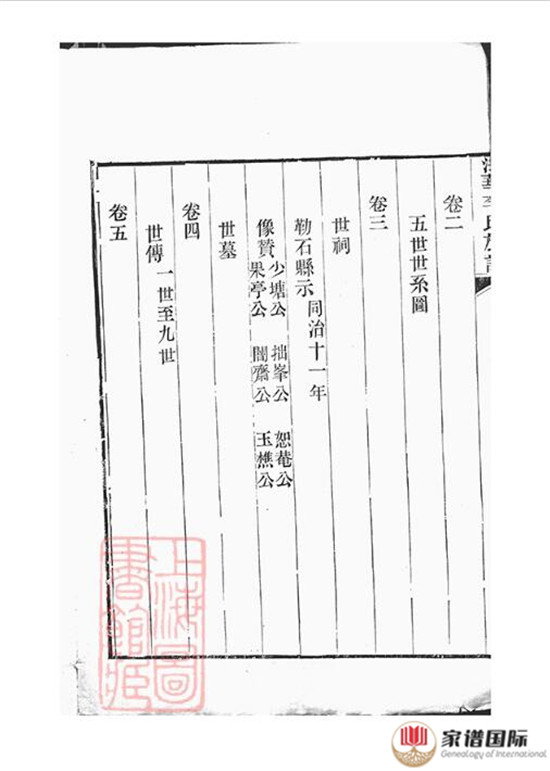 卷二
五世世系圖
卷三
世祠
勒石縣示 同治十一年
像贊 少塘公 拙峯公 恕菴公
果亭公 闇齋公 玉樵公
世墓
卷四
世傳 一世至九世
卷五
上海圖
書館藏
家谱国际
Genealogy of International